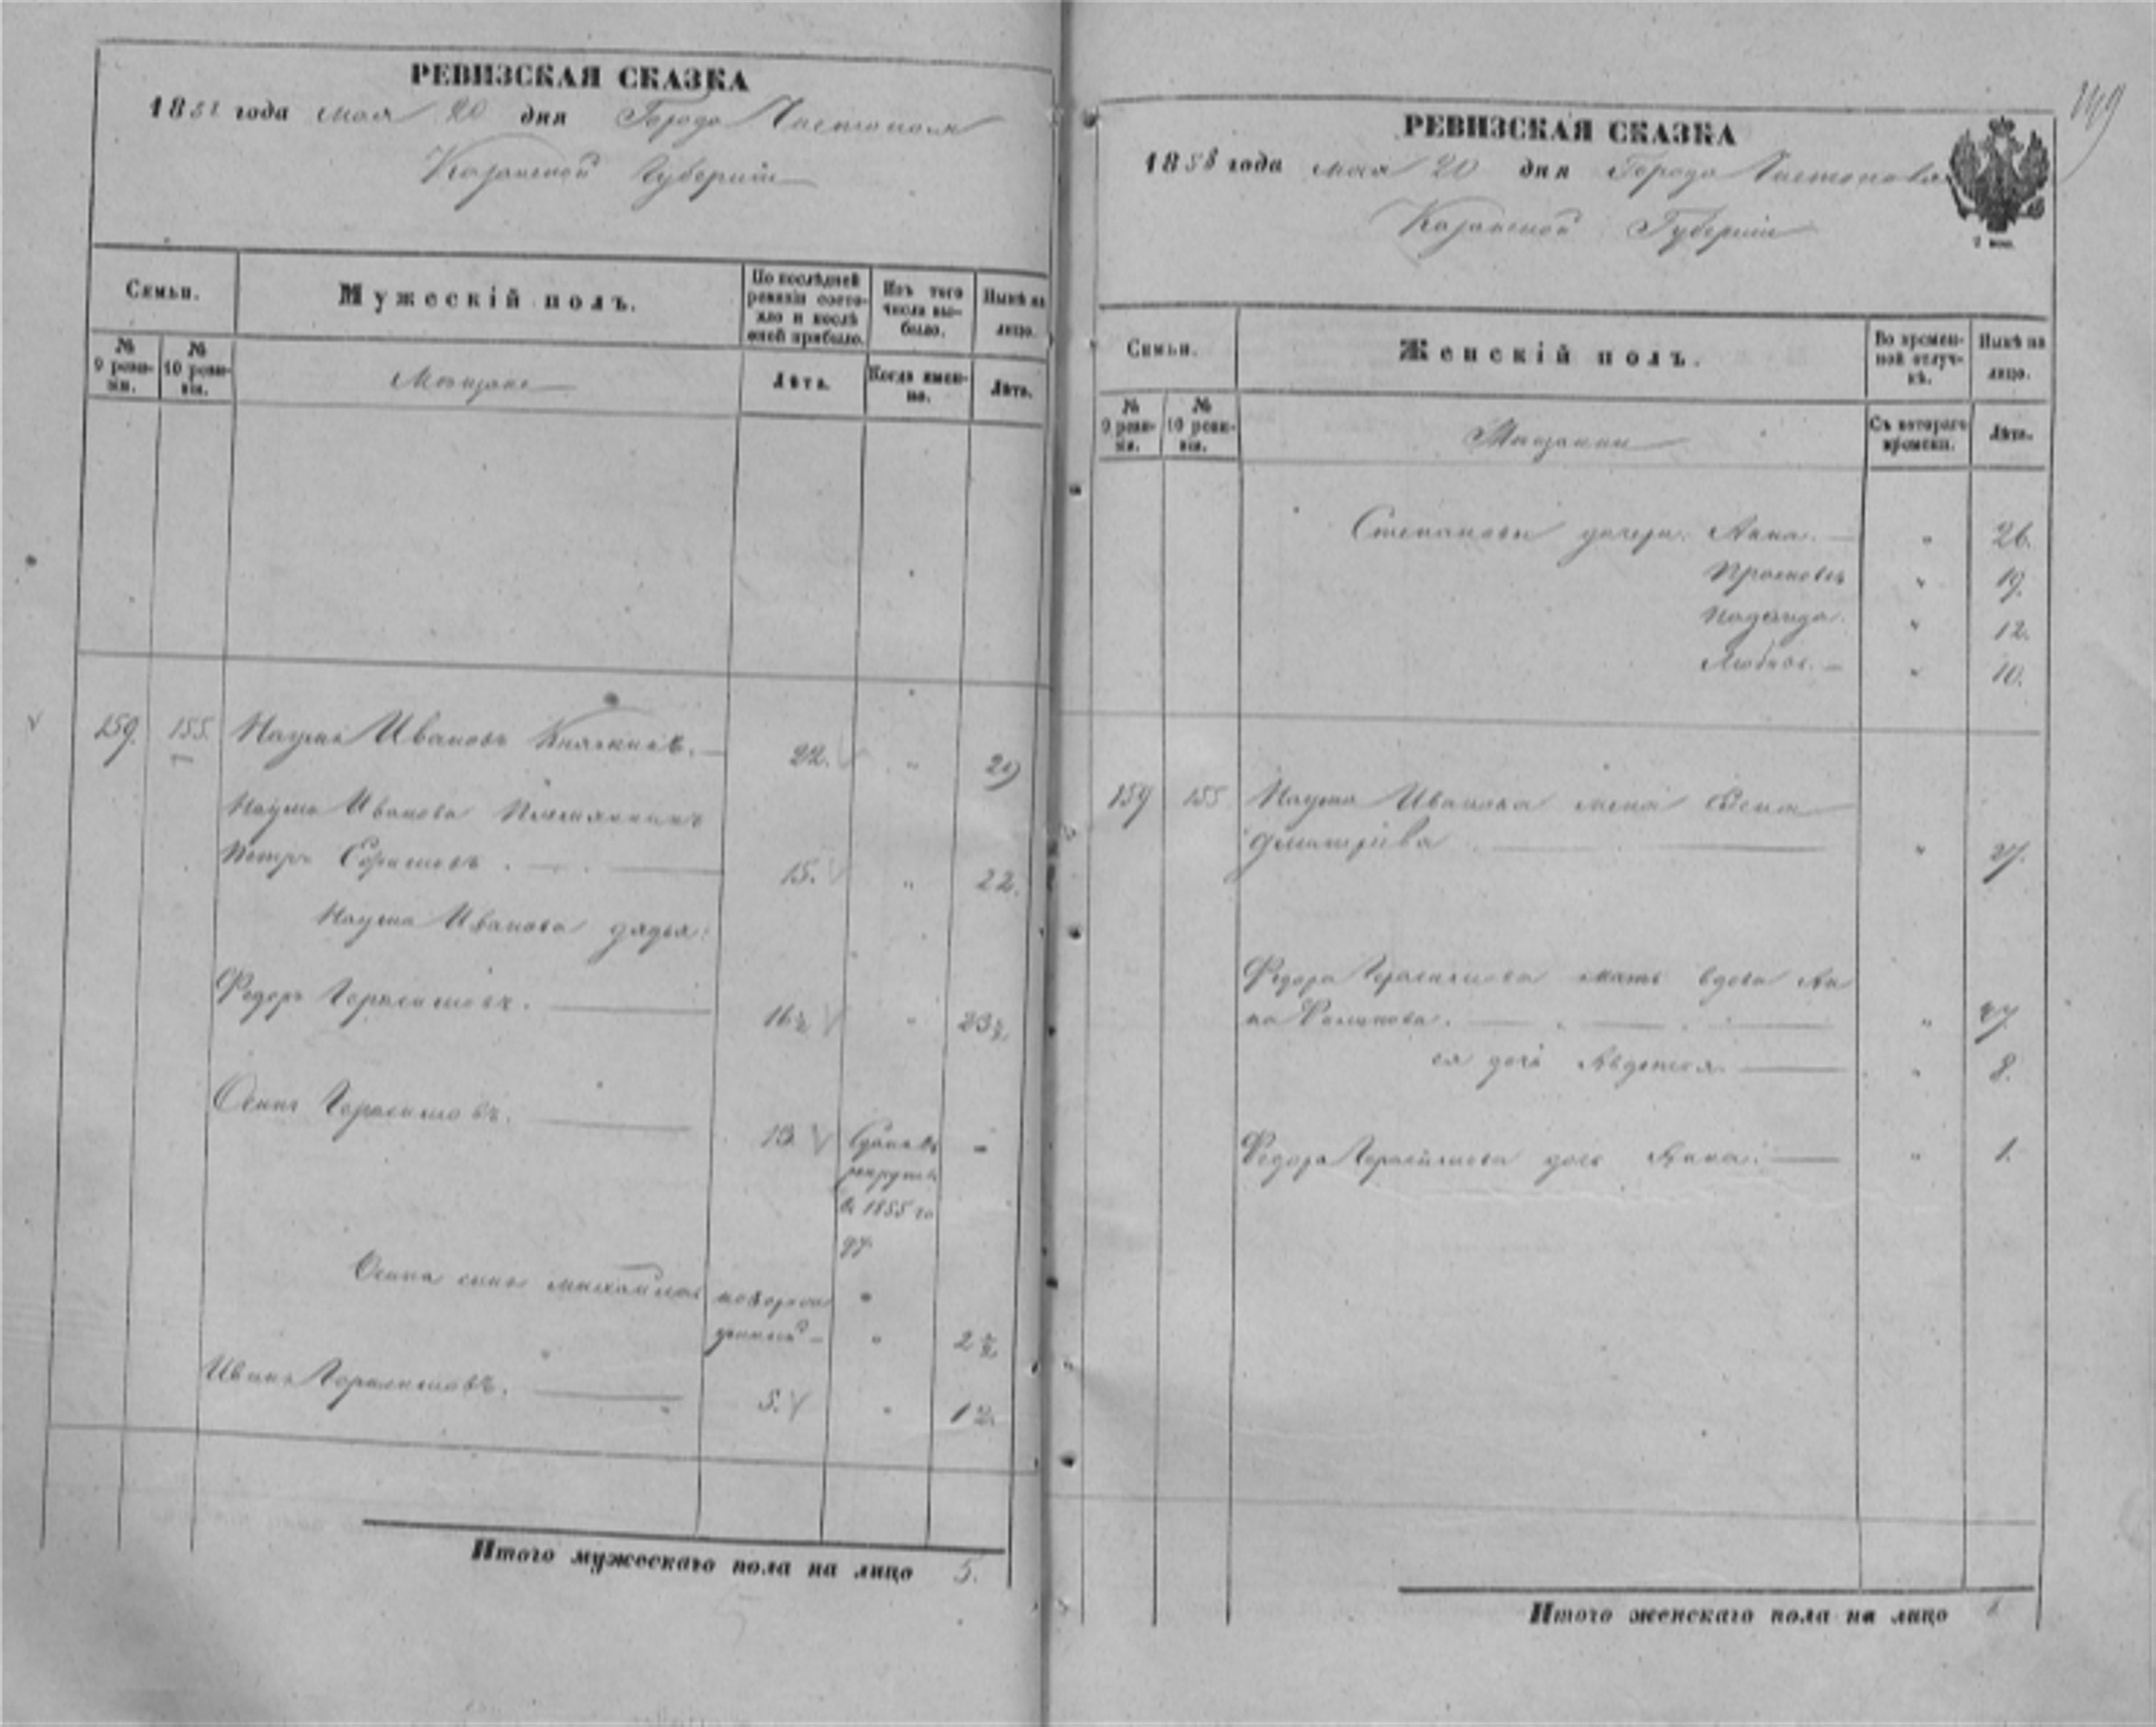 РЕВИЗСКАЯ СКАЗКА
1858 года мая 20 дня Города Чистополя
Казанской Губерніи
Семьи.
Мужескій полъ.
По послѣдней ревизіи состояло и послѣ оной прибыло.
Изъ того числа выбыло.
Нынѣ на лицо.
№ 9 ревизіи.
№ 10 ревизіи.
Мѣщане
Лѣта.
Когда именно.
Лѣта.
159. 155. Наумъ Ивановъ 22. " 29
Наума Иванова племянникъ
Петръ 15. " 22.
Наума Иванова дядья:
Федоръ Герасимовъ. 16½ " 23½
Осипъ Герасимовъ. 13. Сданъ въ -
рекруты
въ 1855 го
ду
Осипа сынъ Михайла новорож "
денный - " 2½
Иванъ Герасимовъ. 5. " 12.
Итого мужескаго пола на лицо 5.
149
РЕВИЗСКАЯ СКАЗКА
1858 года мая 20 дня Города Чистополя
Казанской Губерніи
Семьи.
Женскій полъ.
Во временной отлучкѣ.
Нынѣ на лицо.
№ 9 ревизіи.
№ 10 ревизіи.
Мѣщанки
Съ котораго времени.
Лѣта.
Степановы дочери: Анна. " 26.
Прасковья " 19.
Надежда. " 12.
Любовь. " 10.
159 155 Наума Иванова жена
Дмитріева " 27.
Федора Герасимова мать вдова Ан
на " 47.
ея дочь Авдотья " 8.
Федора Герасимова дочь Анна: " 1.
Итого женскаго пола на лицо